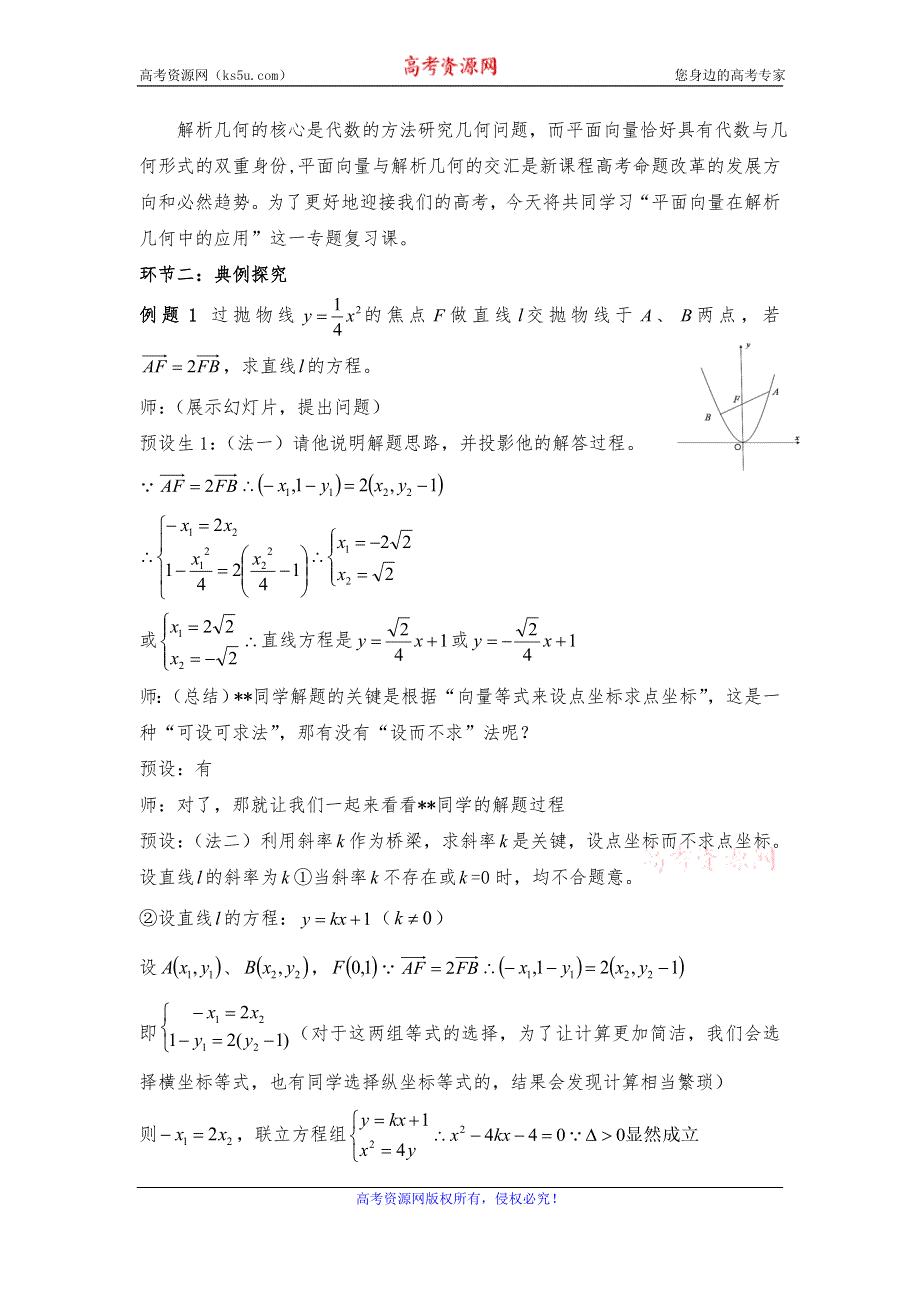 高考资源网（ks5u.com） 高考资源网 您身边的高考专家
解析几何的核心是代数的方法研究几何问题，而平面向量恰好具有代数与几
何形式的双重身份,平面向量与解析几何的交汇是新课程高考命题改革的发展方
向和必然趋势。为了更好地迎接我们的高考，今天将共同学习“平面向量在解析
几何中的应用”这一专题复习课。
环节二：典例探究
例题 1 过抛物线 $y=\frac{1}{4}x^2$ 的焦点 F 做直线 l 交抛物线于 A、B 两点，若
$\overrightarrow{AF}=2\overrightarrow{FB}$，求直线 l 的方程。
y
F
A
B
O
x
师：（展示幻灯片，提出问题）
预设生 1：（法一）请他说明解题思路，并投影他的解答过程。
$\because \overrightarrow{AF}=2\overrightarrow{FB} \therefore (-x_1,1-y_1)=2(x_2,y_2-1)$
$\therefore \begin{cases} -x_1=2x_2 \\ 1-\frac{x_1^2}{4}=2\left(\frac{x_2^2}{4}-1\right) \end{cases} \therefore \begin{cases} x_1=-2\sqrt{2} \\ x_2=\sqrt{2} \end{cases}$
或 $\begin{cases} x_1=2\sqrt{2} \\ x_2=-\sqrt{2} \end{cases}$ ∴直线方程是 $y=\frac{\sqrt{2}}{4}x+1$ 或 $y=-\frac{\sqrt{2}}{4}x+1$
师：（总结）**同学解题的关键是根据“向量等式来设点坐标求点坐标”，这是一
种“可设可求法”，那有没有“设而不求”法呢？
预设：有
师：对了，那就让我们一起来看看**同学的解题过程
预设：（法二）利用斜率 k 作为桥梁，求斜率 k 是关键，设点坐标而不求点坐标。
高考资源网
设直线 l 的斜率为 k ①当斜率 k 不存在或 k=0 时，均不合题意。
②设直线 l 的方程：$y=kx+1$（$k\neq 0$）
设 $A(x_1,y_1)$、$B(x_2,y_2)$，$F(0,1)$ $\because \overrightarrow{AF}=2\overrightarrow{FB} \therefore (-x_1,1-y_1)=2(x_2,y_2-1)$
即 $\begin{cases} -x_1=2x_2 \\ 1-y_1=2(y_2-1) \end{cases}$（对于这两组等式的选择，为了让计算更加简洁，我们会选
择横坐标等式，也有同学选择纵坐标等式的，结果会发现计算相当繁琐）
则 $-x_1=2x_2$，联立方程组 $\begin{cases} y=kx+1 \\ x^2=4y \end{cases}$ $\therefore x^2-4kx-4=0 \because \Delta>0$ 显然成立
高考资源网版权所有，侵权必究！